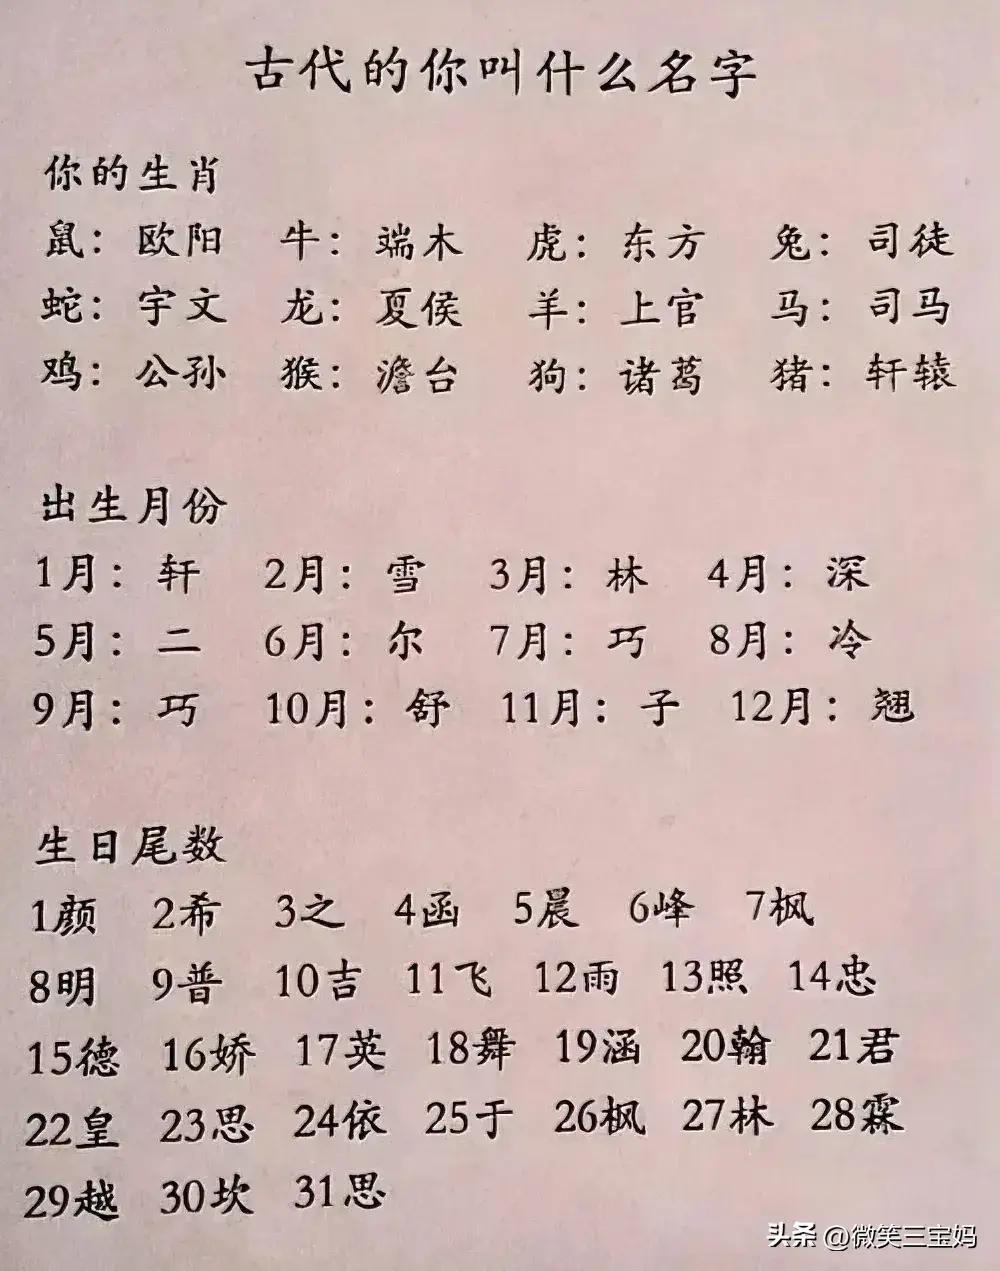 古代的你叫什么名字
你的生肖
鼠：欧阳 牛：端木 虎：东方 兔：司徒
蛇：宇文 龙：夏侯 羊：上官 马：司马
鸡：公孙 猴：澹台 狗：诸葛 猪：轩辕
出生月份
1月：轩 2月：雪 3月：林 4月：深
5月：二 6月：尔 7月：巧 8月：冷
9月：巧 10月：舒 11月：子 12月：翘
生日尾数
1颜 2希 3之 4函 5晨 6峰 7枫
8明 9普 10吉 11飞 12雨 13照 14忠
15德 16娇 17英 18舞 19涵 20翰 21君
22皇 23思 24依 25于 26枫 27林 28霖
29越 30坎 31思
头条 @微笑三宝妈